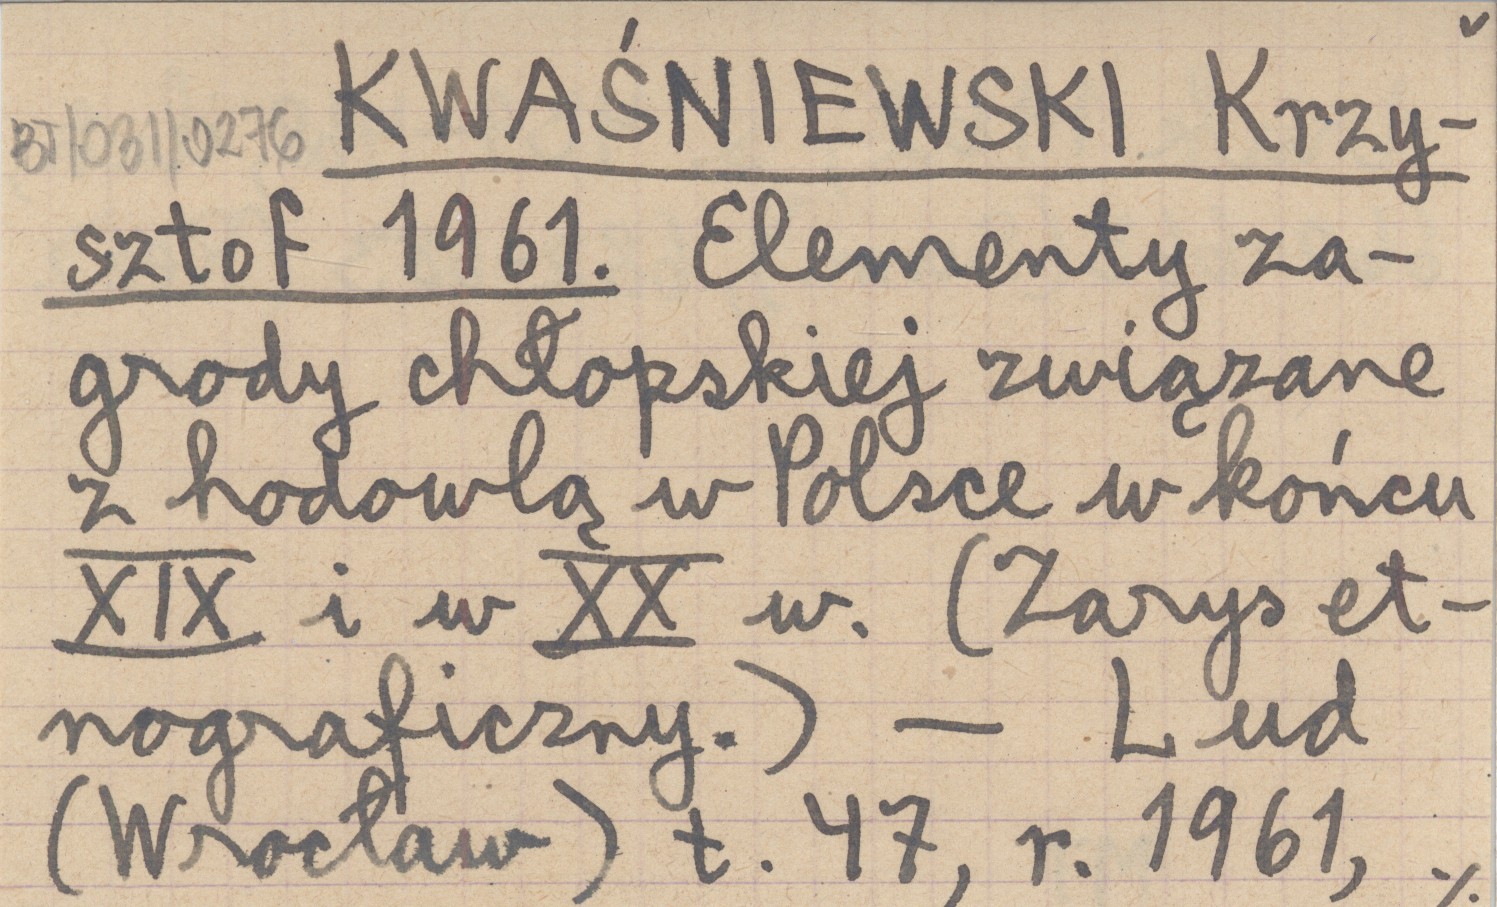 BJ/031/0276 KWAŚNIEWSKI Krzy-
sztof 1961. Elementy za-
grody chłopskiej związane
z hodowlą w Polsce w końcu
XIX i w XX w. (Zarys et-
nograficzny.) — Lud
(Wrocław) t. 47, r. 1961, ./.